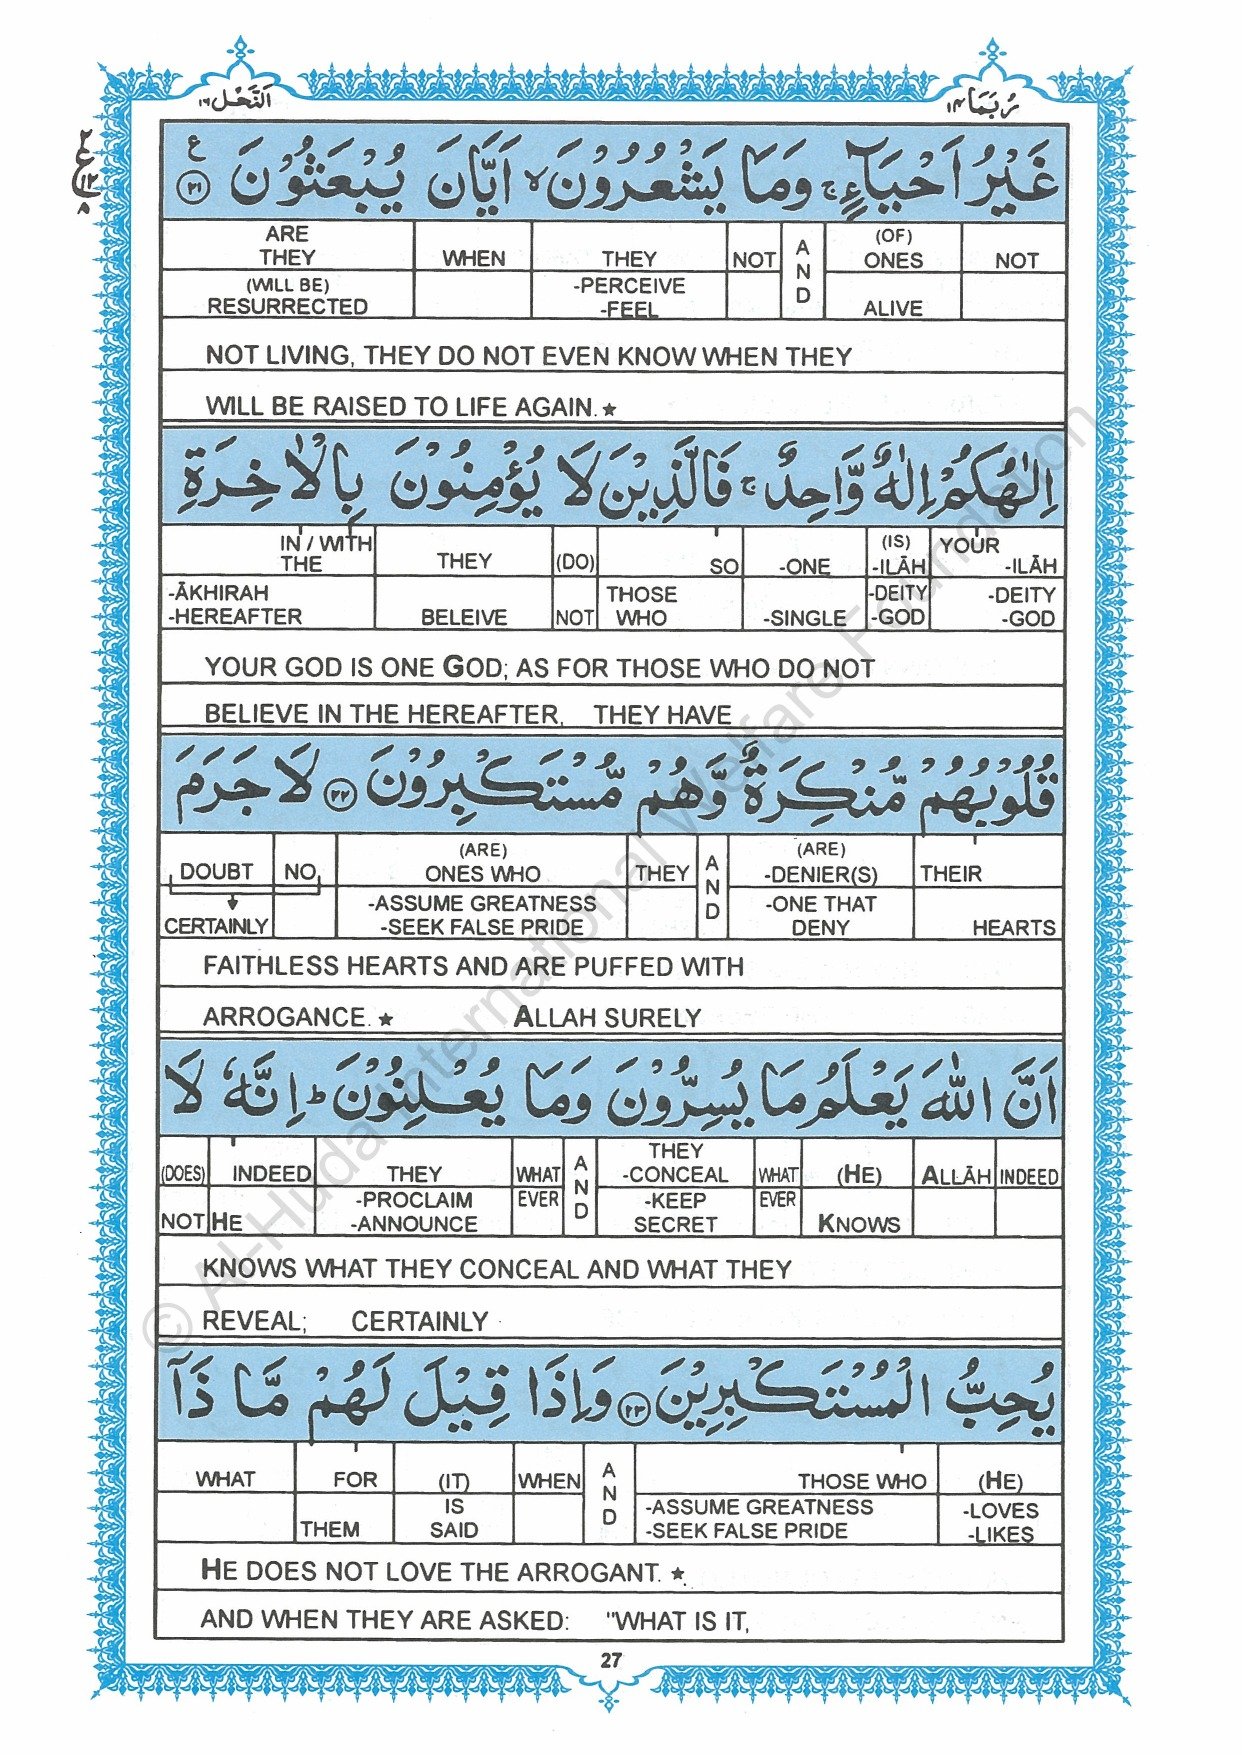 رُبَمَا ١٤
اَلنَّحْل ١٦
غَيْرُ اَحْيَآءٍ ۚ وَمَا يَشْعُرُوْنَ ۙ اَيَّانَ يُبْعَثُوْنَ ٢١ ع
ARE THEY WHEN THEY NOT AND (OF) ONES NOT
(WILL BE) RESURRECTED -PERCEIVE -FEEL ALIVE
NOT LIVING, THEY DO NOT EVEN KNOW WHEN THEY
WILL BE RAISED TO LIFE AGAIN. ★
اِلٰهُكُمْ اِلٰهٌ وَّاحِدٌ ۚ فَالَّذِيْنَ لَا يُؤْمِنُوْنَ بِالْاٰخِرَةِ
IN / WITH THE THEY (DO) SO -ONE (IS) -ILĀH YOUR -ILĀH
-ĀKHIRAH -HEREAFTER BELEIVE NOT THOSE WHO -SINGLE -DEITY -GOD -DEITY -GOD
YOUR GOD IS ONE GOD; AS FOR THOSE WHO DO NOT
BELIEVE IN THE HEREAFTER, THEY HAVE
قُلُوْبُهُمْ مُّنْكِرَةٌ وَّهُمْ مُّسْتَكْبِرُوْنَ ٢٢ لَا جَرَمَ
DOUBT NO (ARE) ONES WHO THEY AND (ARE) -DENIER(S) THEIR
CERTAINLY -ASSUME GREATNESS -SEEK FALSE PRIDE -ONE THAT DENY HEARTS
FAITHLESS HEARTS AND ARE PUFFED WITH
ARROGANCE. ★ ALLAH SURELY
اَنَّ اللّٰهَ يَعْلَمُ مَا يُسِرُّوْنَ وَمَا يُعْلِنُوْنَ ؕ اِنَّهٗ لَا
(DOES) INDEED THEY WHAT AND THEY -CONCEAL WHAT (HE) ALLĀH INDEED
NOT HE -PROCLAIM -ANNOUNCE EVER -KEEP SECRET EVER KNOWS
KNOWS WHAT THEY CONCEAL AND WHAT THEY
REVEAL; CERTAINLY
يُحِبُّ الْمُسْتَكْبِرِيْنَ ٢٣ وَاِذَا قِيْلَ لَهُمْ مَّا ذَآ
WHAT FOR (IT) WHEN AND THOSE WHO (HE)
THEM IS SAID -ASSUME GREATNESS -SEEK FALSE PRIDE -LOVES -LIKES
HE DOES NOT LOVE THE ARROGANT. ★
AND WHEN THEY ARE ASKED: "WHAT IS IT,
27
© Al-Huda International Welfare Foundation